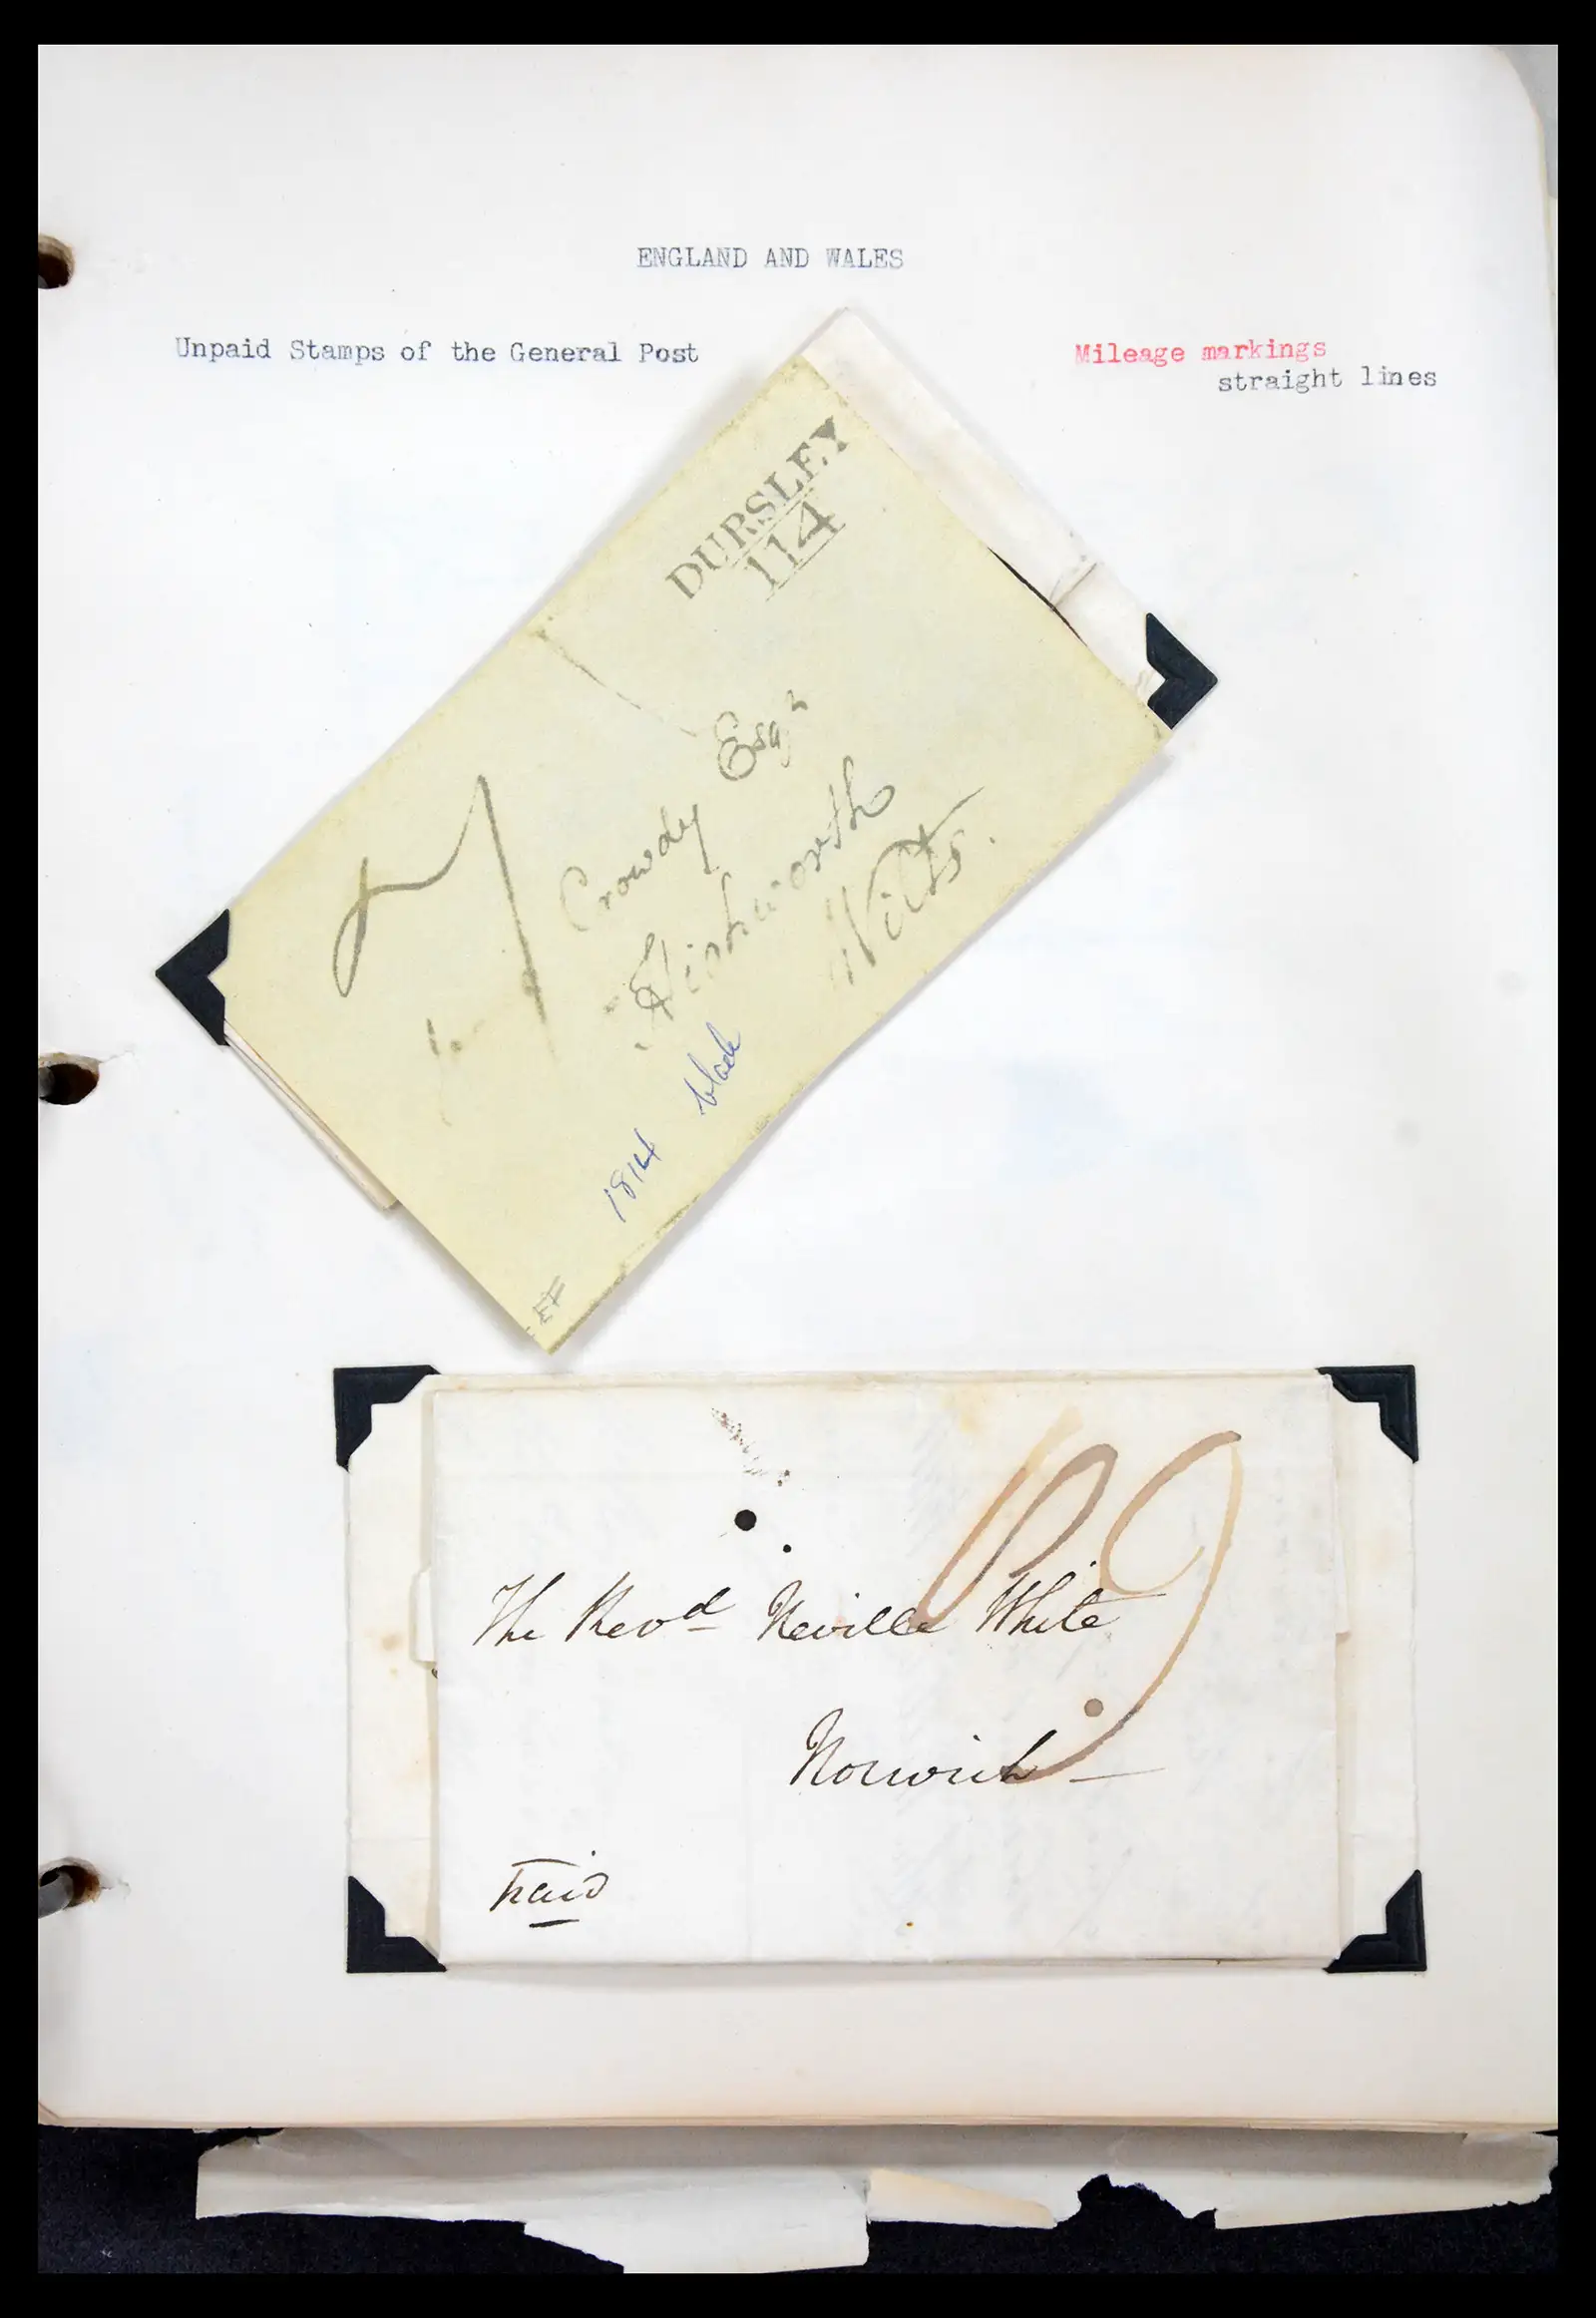 ENGLAND AND WALES
Unpaid Stamps of the General Post
Mileage markings
straight lines
DURSLEY
114
7
Crowdy Esqr
Highworth
Wilts.
1814 black
EF
The Revd Neville White
Norwich
Paid